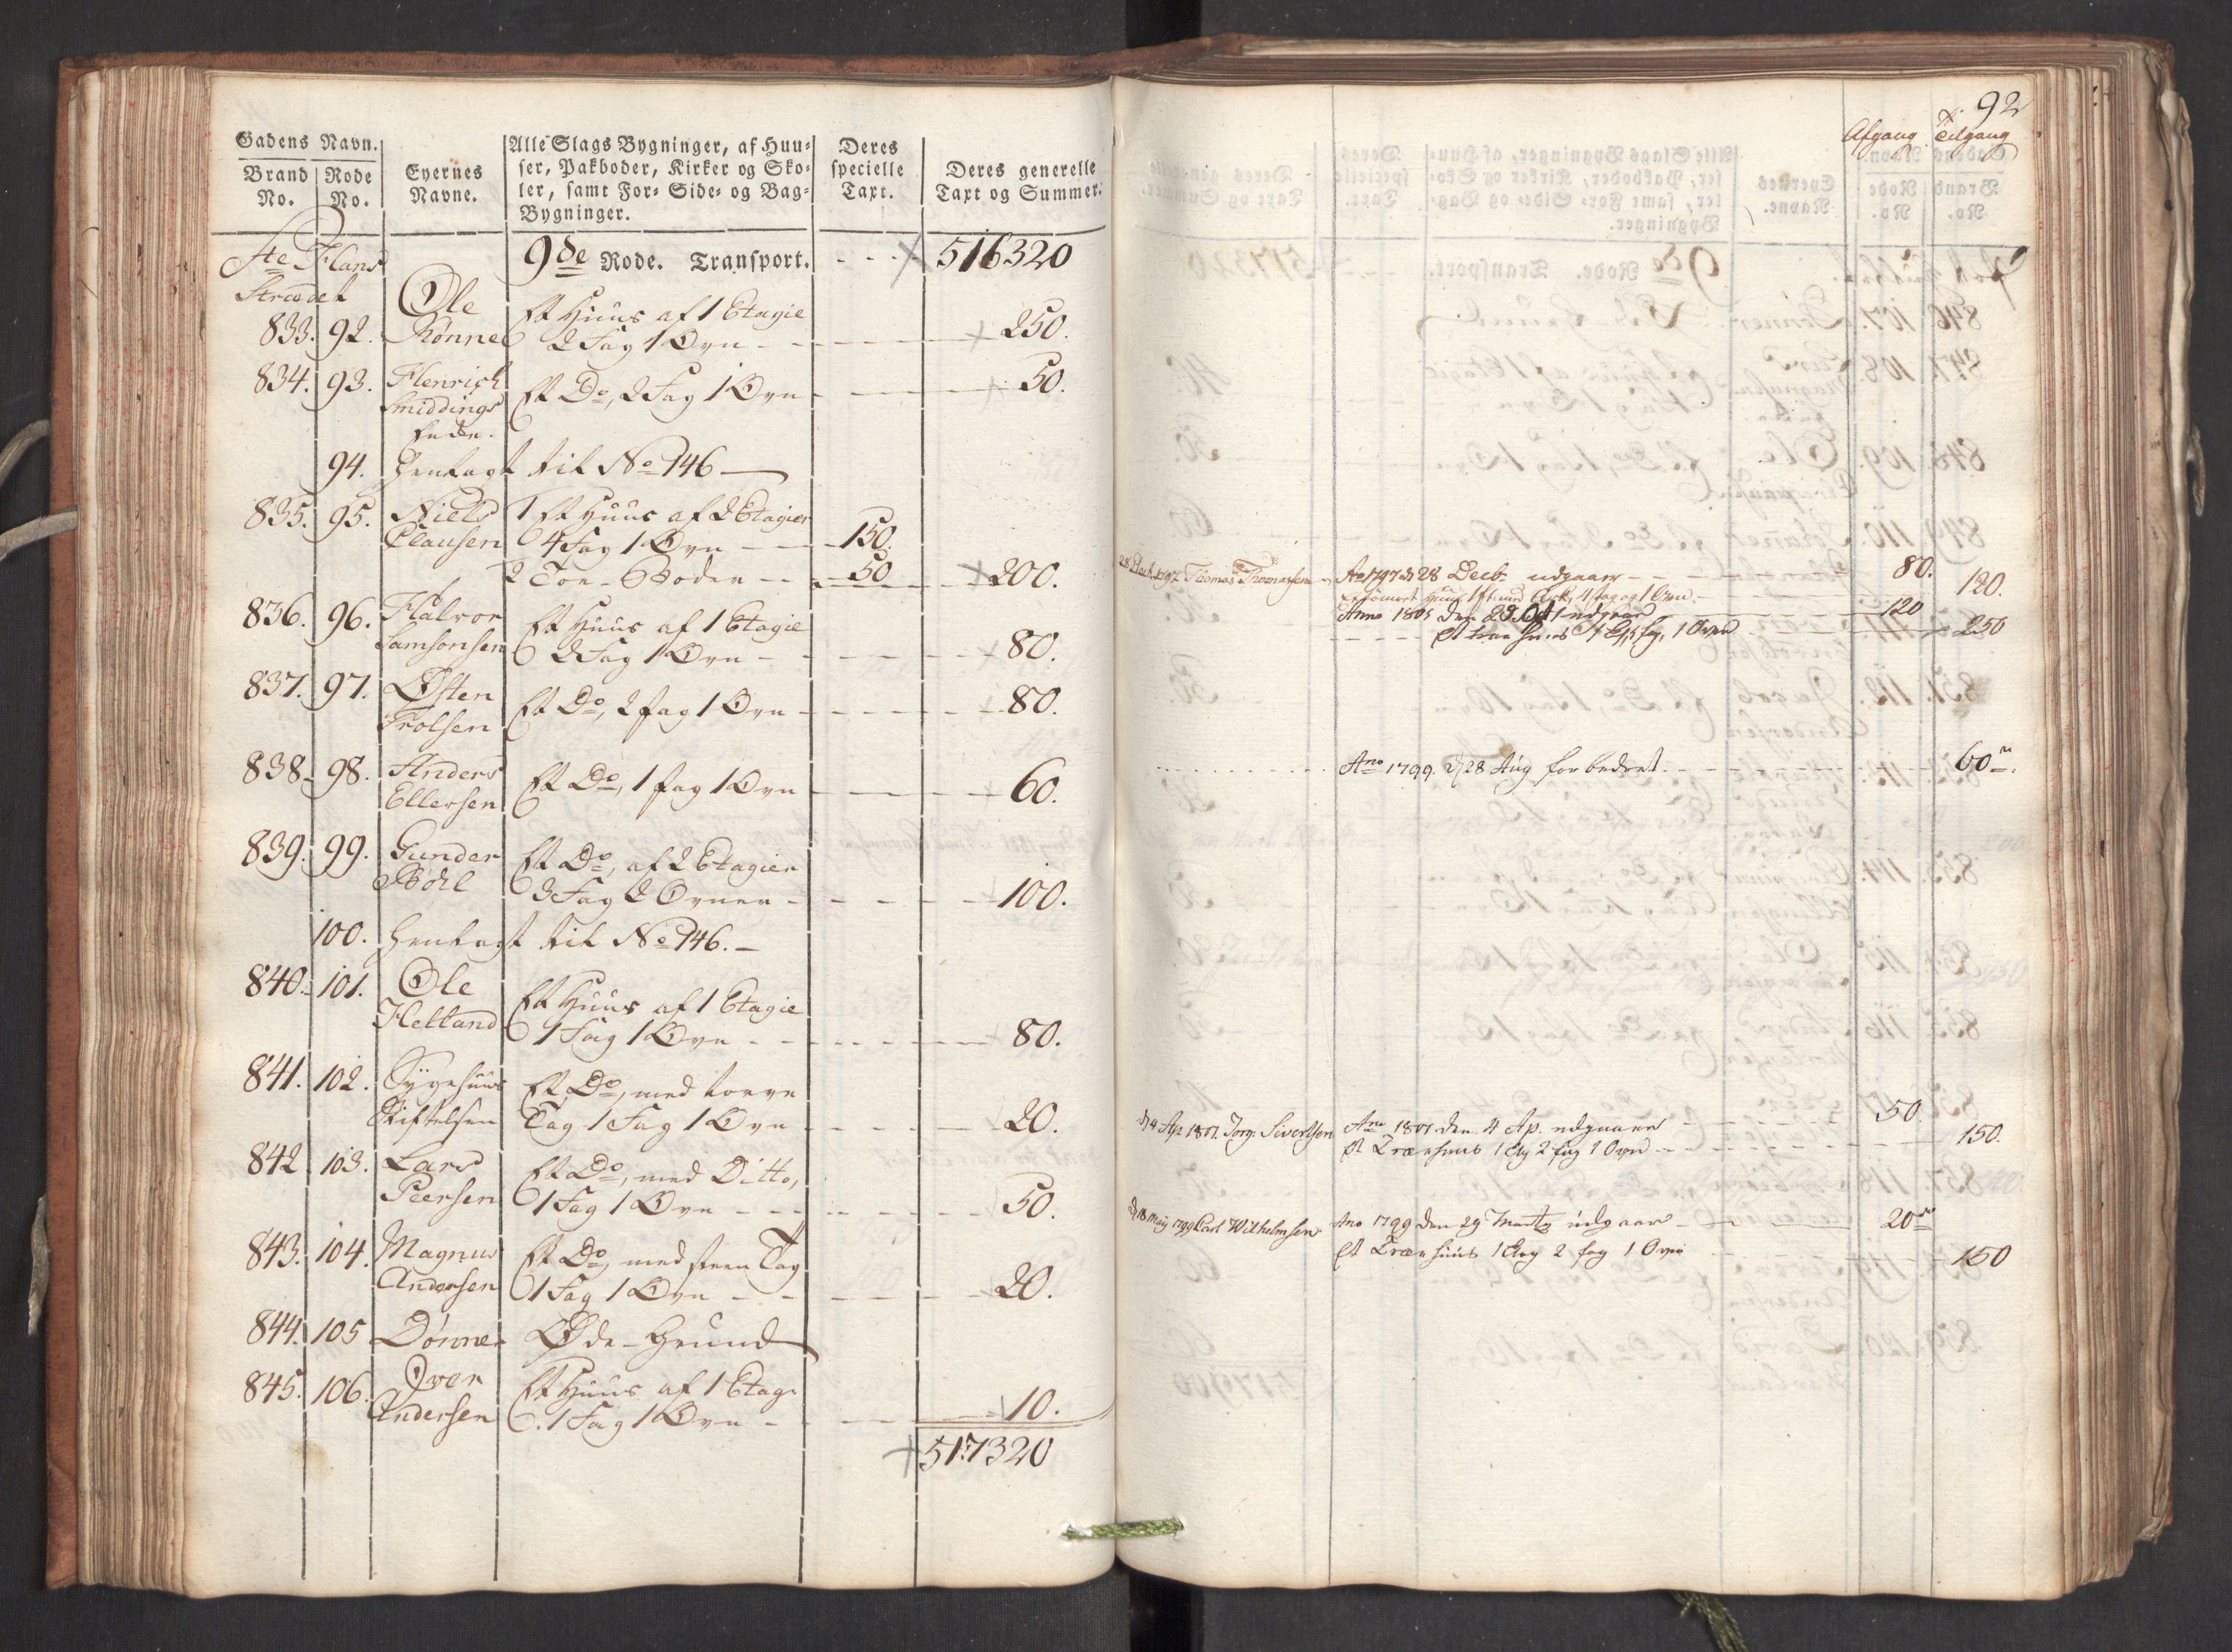 Gadens Navn.
Brand No. Rode No.
Eyernes Navne.
Alle Slags Bygninger, af Huu-
ser, Pakboder, Kirker og Sko-
ler, samt For- Side- og Bag-
Bygninger.
Deres specielle Taxt.
Deres generelle Taxt og Summer.
Ste Hans 9de Rode. Transport. 516320
Strædet
Ole Et Huus af 1 Etagie
833. 92. Rønne 2 Fag 1 Ovn 250.
834. 93. Henrich Et Do, 2 Fag 1 Ovn 50.
Smiddings
Enke.
94. henlagt til No 146
835. 95. Niels 1 Et Huus af 2 Etagier
Clausen 4 Fag 1 Ovn 150.
2 Toe Boder 50 200.
836. 96. Halvor Et Huus af 1 Etagie
Samsonsen 2 Fag 1 Ovn 80.
837. 97. Østen Et Do, 2 fag 1 Ovn 80.
Trolsen
838. 98. Anders Et Do, 1 fag 1 Ovn 60.
Ellersen
839. 99. Gunder Et Do, af 2 Etagier
Bøhl 3 Fag 2 Ovner 100.
100. henlagt til No 146.
840. 101. Ole Et Huus af 1 Etagie
Helland 1 Fag 1 Ovn 80.
841. 102. Sygehuus Et Do, med torve
Stiftelsen Tag 1 Fag 1 Ovn 20.
842. 103. Lars Et Do, med Ditto,
Peersen 1 Fag 1 Ovn 50.
843. 104. Magnus Et Do, med steen Tag
Andersen 1 Fag 1 Ovn 20.
844. 105 Dønner Øde-Grund
845. 106. Iver Et Huus af 1 Etage
Andersen 1 Fag 1 Ovn 10.
517320
92
Afgang Tilgang
1797 Thomas Thomassen Ao 1797 d 28 Decb. udgaaer 80.
Huus 1 4 fag og 1 Ovn 120.
Anno 1805 den 28 Oct udgaaer 120
et træe huus 1 Etg, 5 fg, 1 Oven 250
Ano 1799. d 28 Aug forbedret. 60
d 4 Ap 1801. Jorg: Sivertsen Ano 1801 den 4 Ap. udgaaer 50.
Et Træehuus 1 Etg 2 fag 1 Oven 150.
d 18 May 1799 Carl Wilhelmsen Ano 1799 den 29 Marty udgaaer 20
Et Træehuus 1 Etag 2 fag 1 Oven 150